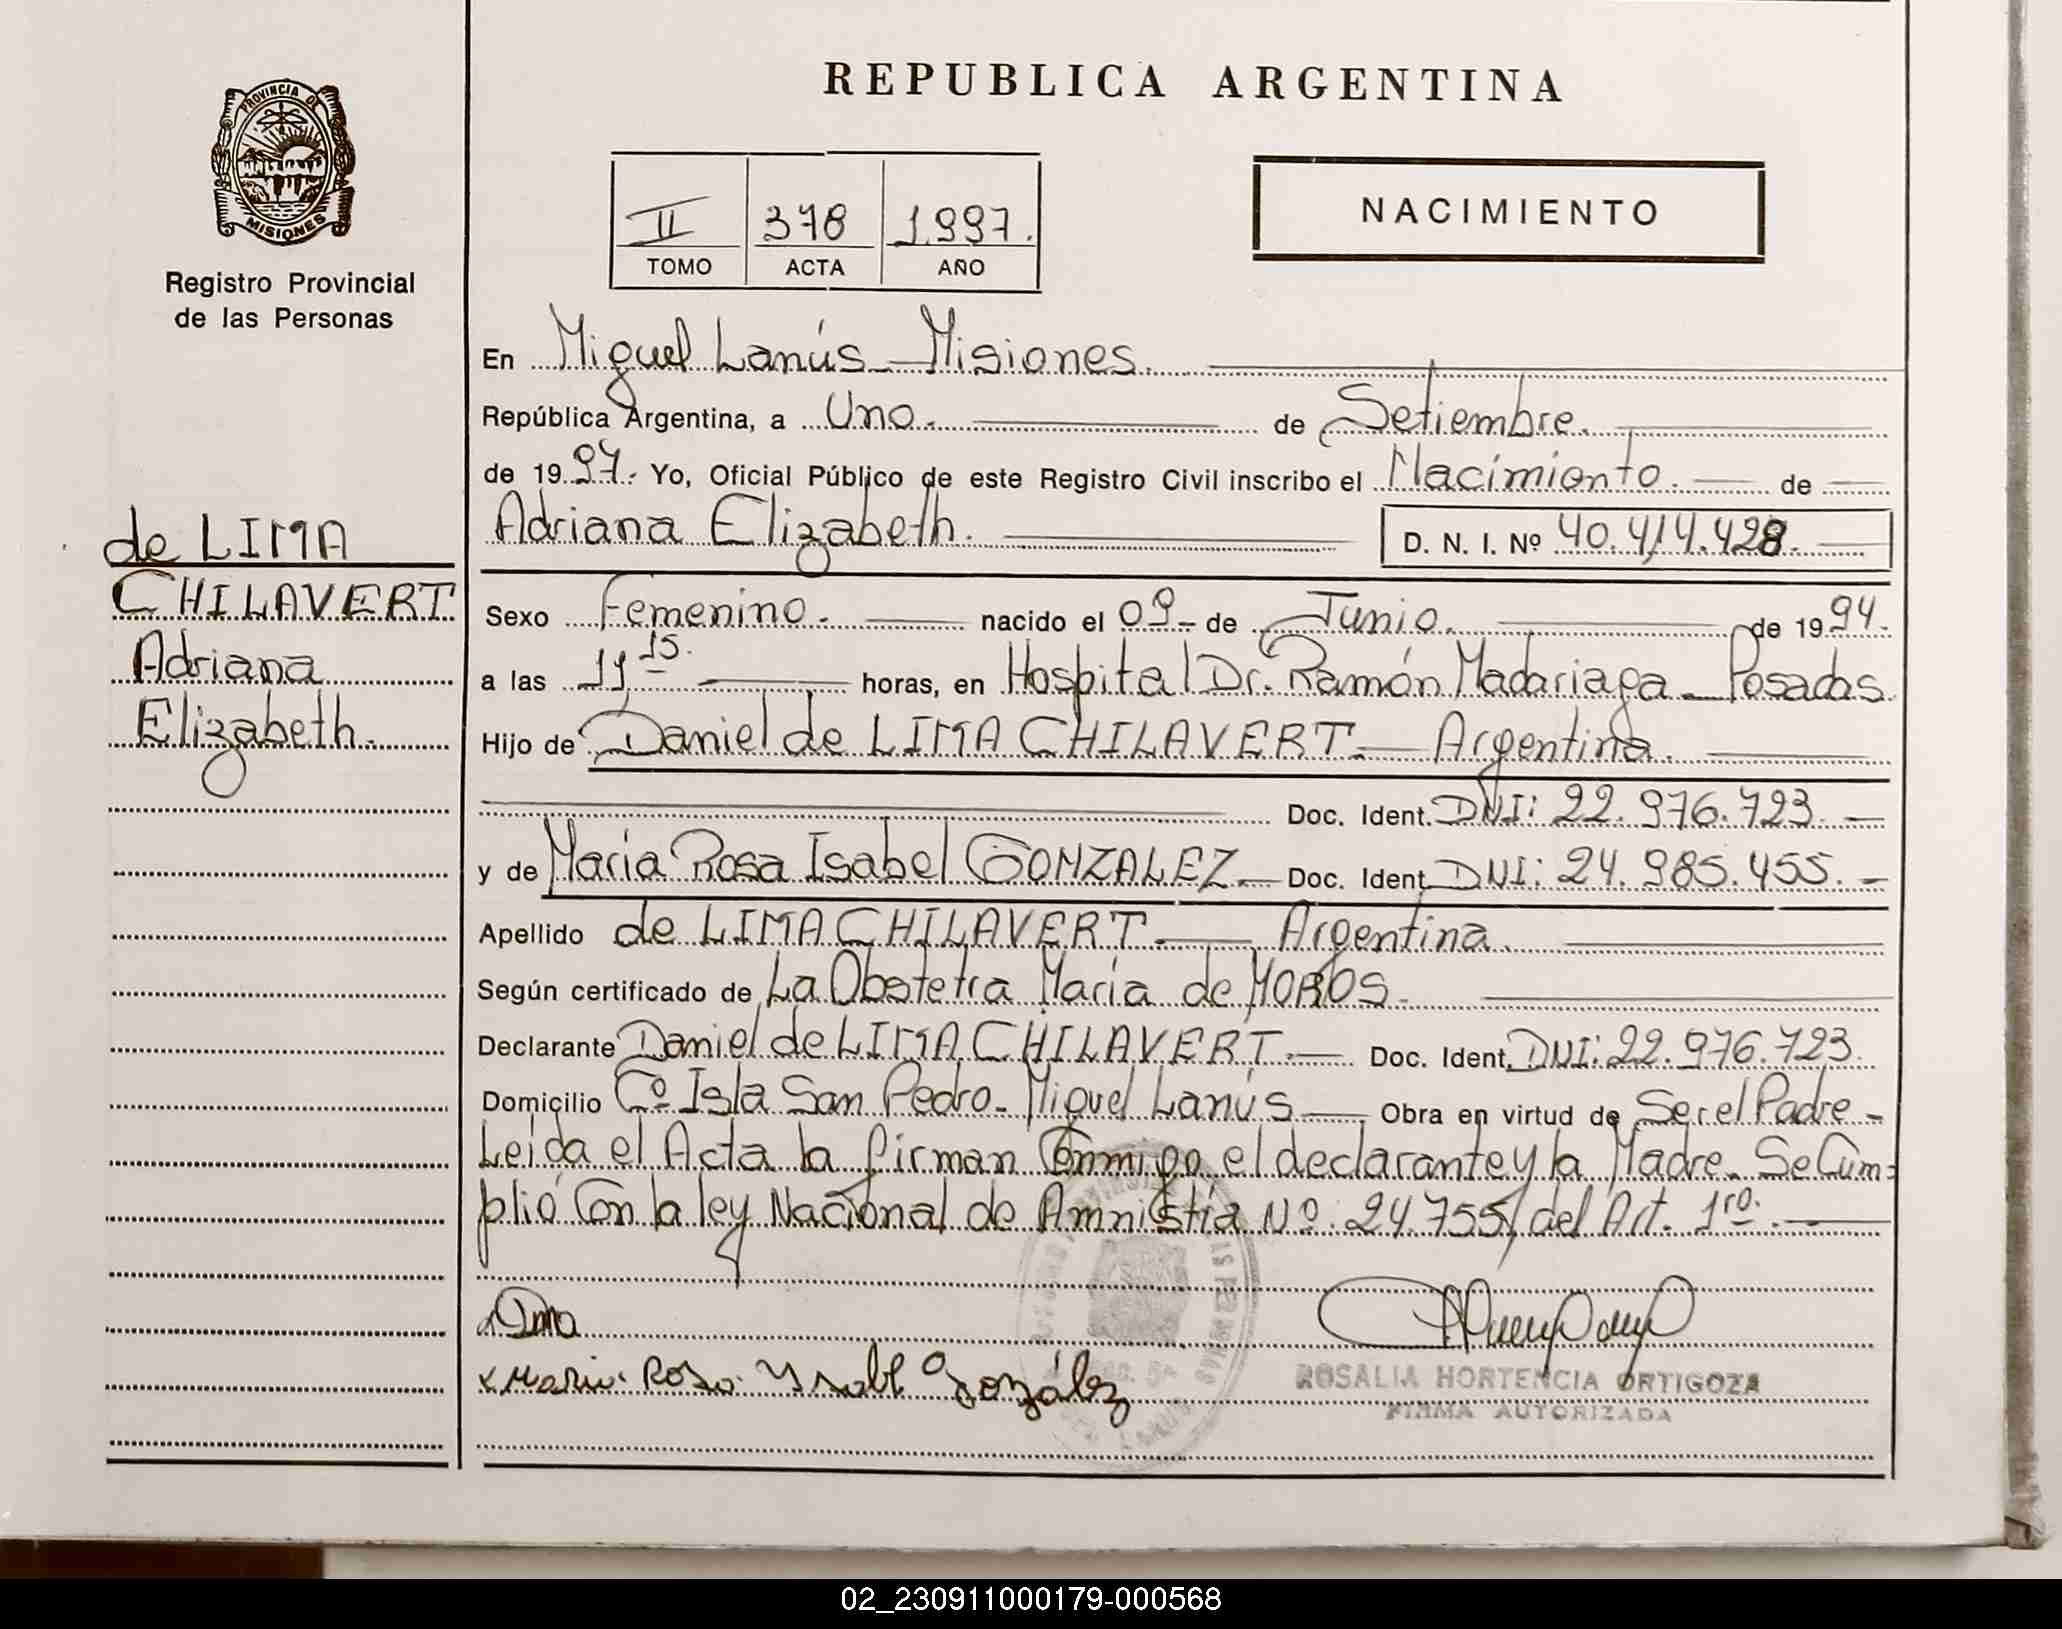 REPUBLICA ARGENTINA
PROVINCIA DE
MISIONES
Registro Provincial
de las Personas
II 378 1.997.
TOMO ACTA AÑO
NACIMIENTO
de LIMA
CHILAVERT
Adriana
Elizabeth.
En Miguel Lanús - Misiones.
República Argentina, a Uno. de Setiembre.
de 19 97. Yo, Oficial Público de este Registro Civil inscribo el Nacimiento. de
Adriana Elizabeth. D. N. I. Nº 40.414.428.
Sexo Femenino. nacido el 09 - de Junio. de 19 94.
a las 11 15. horas, en Hospital Dr. Ramón Madariaga - Posadas.
Hijo de Daniel de LIMA CHILAVERT - Argentina.
Doc. Ident. DNI: 22.976.723. -
y de María Rosa Isabel GONZALEZ - Doc. Ident. DNI: 24.985.455. -
Apellido de LIMA CHILAVERT - Argentina.
Según certificado de La Obstetra María de MOROS.
Declarante Daniel de LIMA CHILAVERT. - Doc. Ident. DNI: 22.976.723.
Domicilio Cº Isla San Pedro - Miguel Lanús - Obra en virtud de Ser el Padre -
Leída el Acta la firman Conmigo el declarante y la Madre. Se Cum=
plió Con la ley Nacional de Amnistía Nº. 24.755/ del Art. 1ro. -
x María Rosa Ysabel González
ROSALIA HORTENCIA ORTIGOZA
FIRMA AUTORIZADA
02_230911000179-000568